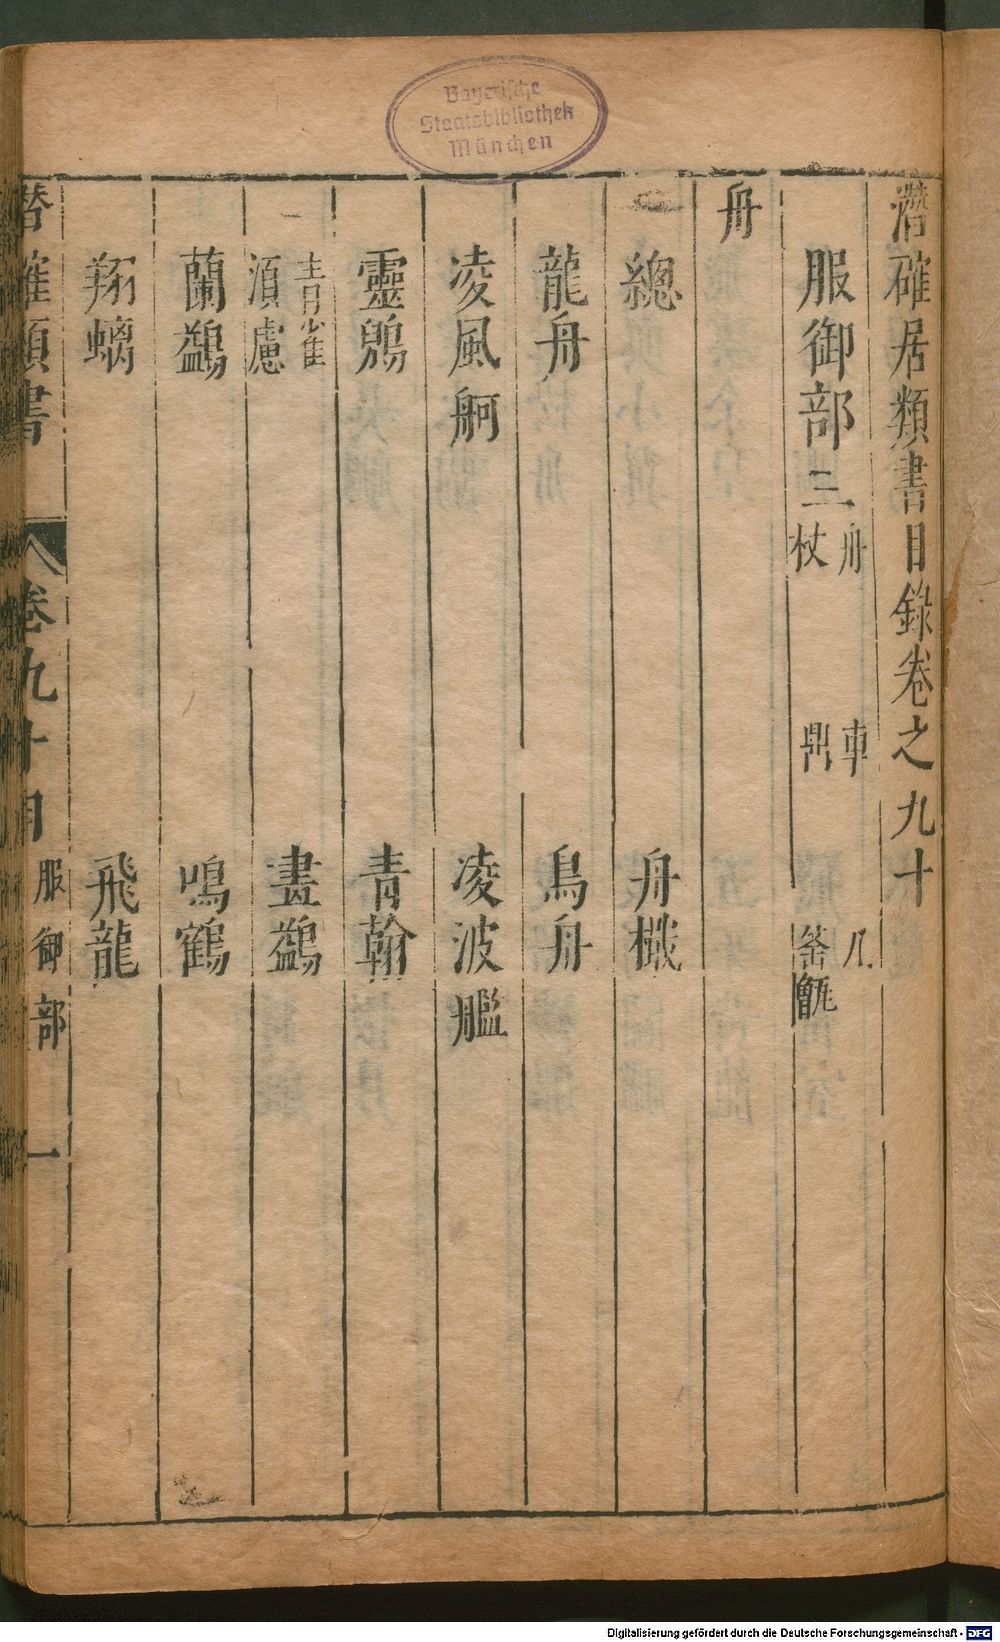 Bayerische
Staatsbibliothek
München
潛確居類書目錄卷之九十
服御部三 舟 車 几
杖 鼎 釜甑
舟
總 舟檝
龍舟 鳥舟
凌風舸 凌波艦
靈鷁 青翰
青雀 畫鷁
須慮
蘭鷁 鳴鶴
翔螭 飛龍
潛確類書 卷九十目 服御部 一
Digitalisierung gefördert durch die Deutsche Forschungsgemeinschaft - DFG